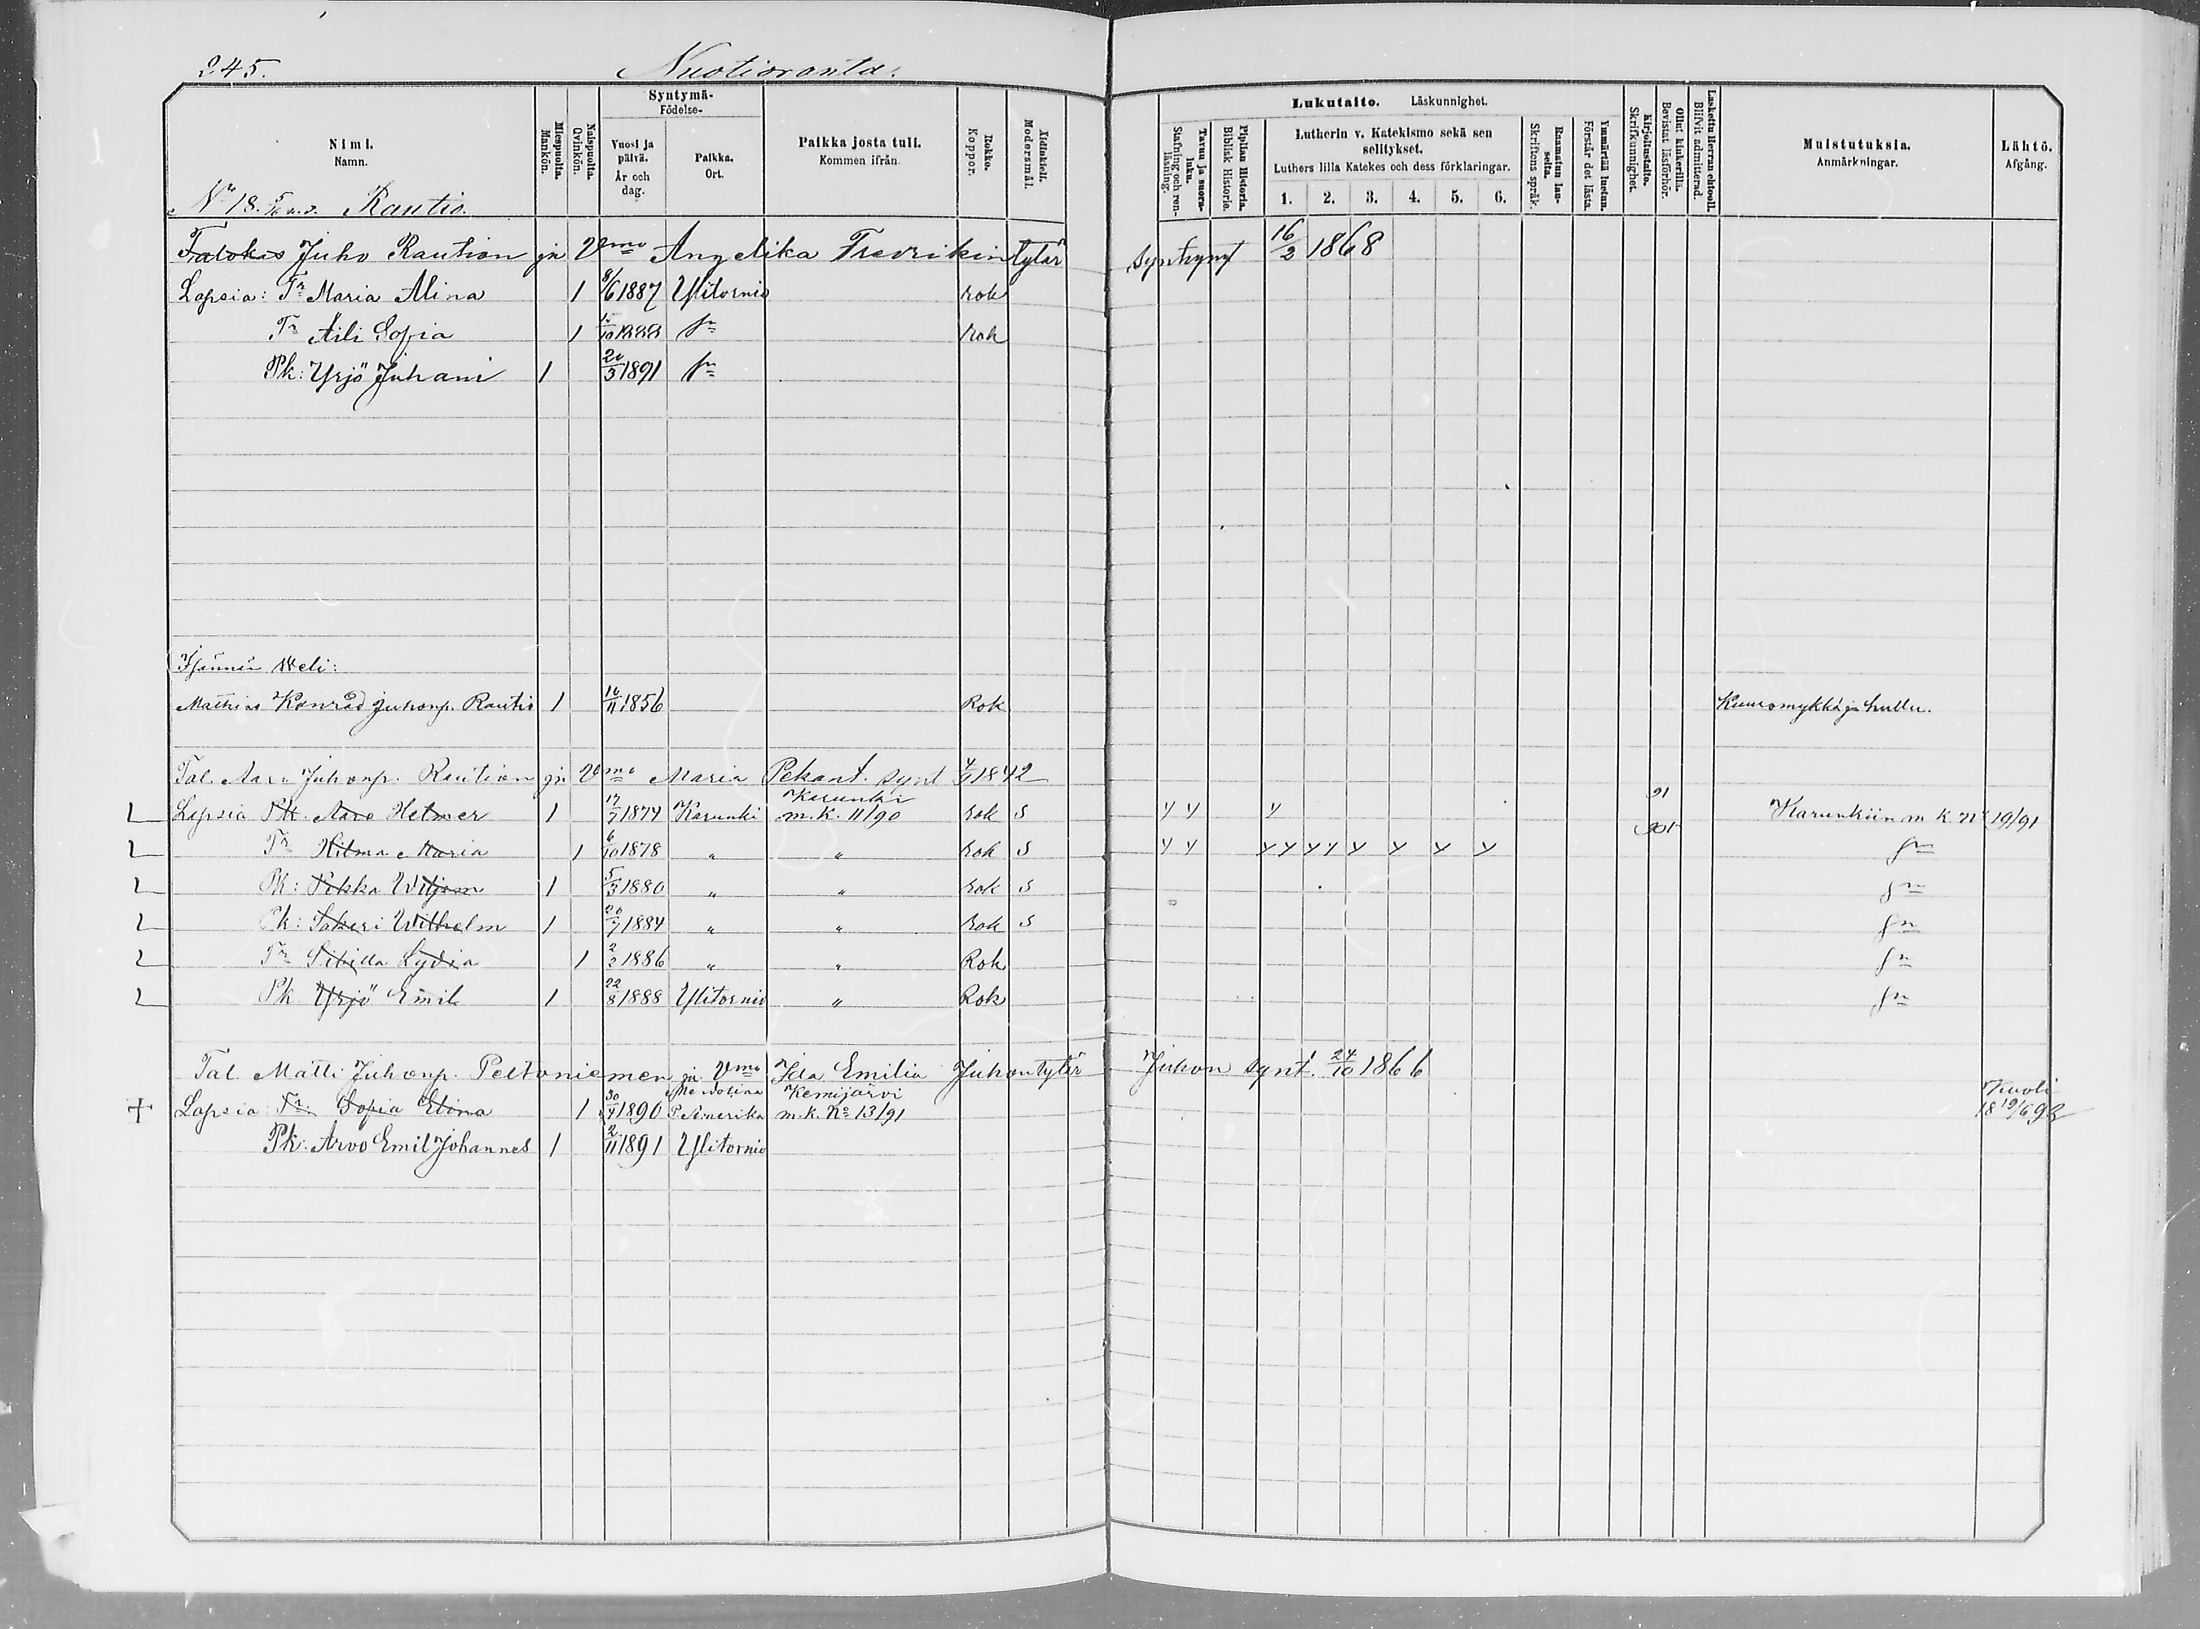 245.
Nuotioranta.
Nimi.
Namn.
Miespuolia.
Mankön.
Naispuolia.
Qvinkön.
Syntymä-
Födelse-
Vuosi ja päivä.
År och dag.
Paikka.
Ort.
Paikka josta tuli.
Kommen ifrån.
Rokko.
Koppor.
Äidinkieli.
Modersmål.
Lukutaito. Läskunnighet.
Tavuu ja suora-luku.
Stafning och ren-läsning.
Piplian Historia.
Biblisk Historie.
Lutherin v. Katekismo sekä sen selitykset.
Luthers lilla Katekes och dess förklaringar.
1. 2. 3. 4. 5. 6.
Raamatun lau-seita.
Skriftens språk.
Ymmärtää luetun.
Förstår det lästa.
Kirjoitustaito.
Skrifkunnighet.
Ollut kinkerillä.
Bevistat läsförhör.
Laskettu Herran ehtooll.
Blifvit admitterad.
Muistutuksia.
Anmärkningar.
Lähtö.
Afgång.
No 18. Rautio.
Talokas Juho Raution ja Vmo Angelika Fredrikintytär syntynyt 16/2 1868
Lapsia: Tr Maria Alina 1 8/6 1887 Ylitornio rok
Tr Aili Sofia 1 /10 1888 sn rok
Pk: Yrjö Juhani 1 20/3 1891 sn
Isännän Weli:
Mathias Konråd Juhonp. Rautio 1 10/11 1856 Rok Kuuromykkä ja hullu.
Tal. Juhonp. Raution ja Vmo Maria Pekant. synt 4/1 1842
Karunki 91
L Lapsia Pk. Aaro Helmer 1 17/7 1874 Karunki m.k. 11/90 rok S y y y Karunkiin m k No 19/91
L Tr Hilma Maria 1 6/10 1878 " " rok S y y y y y y y y y y sn
L Pk: Pekka Wiljam 1 5/3 1880 " " rok S sn
L Pk: Sakeri Wilhelm 1 20/7 1884 " " rok S sn
L Tr Sibilla Lydia 1 2/2 1886 " " Rok sn
L Pk. Yrjö Emil 1 22/8 1888 Ylitornio " Rok sn
Tal. Matti Juhonp. Peltoniemen ja Vmo Ida Emilia Juhontytär Juhon synt. 24/10 1866
Kemijärvi Kuoli
+ Lapsia: Tr. Sofia Elina 1 30/4 1890 P. Amerika m.k. No 13/91 18 19/6 92
Pk: Arvo Emil Johannes 1 2/11 1891 Ylitornio